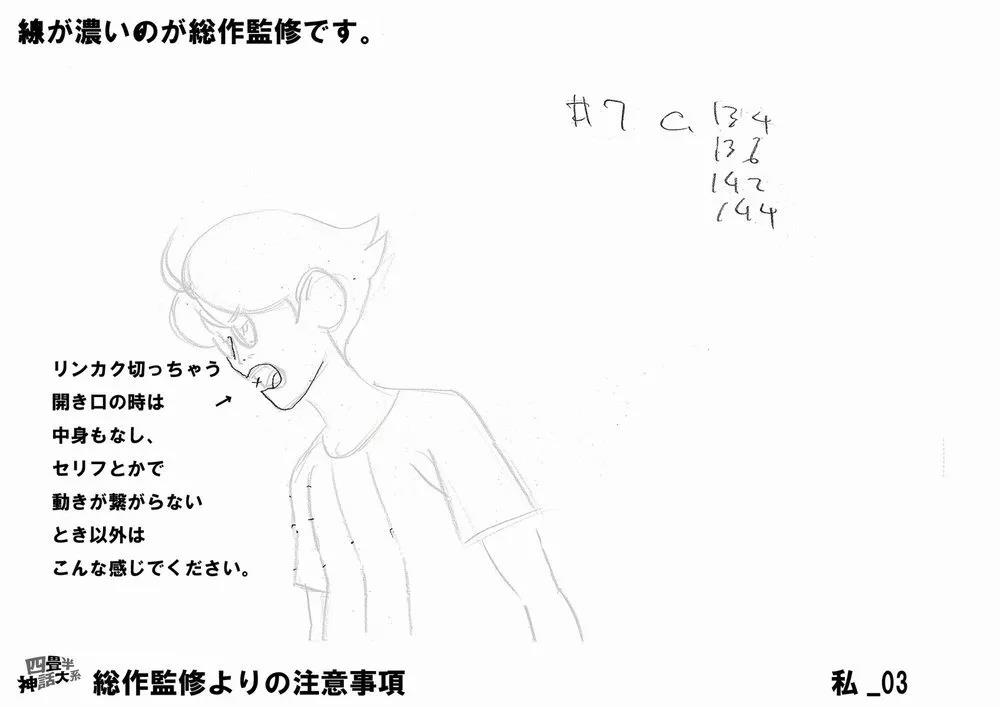 線が濃いのが総作監修です。
#7 C. 134
136
142
144
リンカク切っちゃう
開き口の時は
中身もなし、
セリフとかで
動きが繋がらない
とき以外は
こんな感じでください。
四畳半
神話大系
総作監修よりの注意事項
私 _03